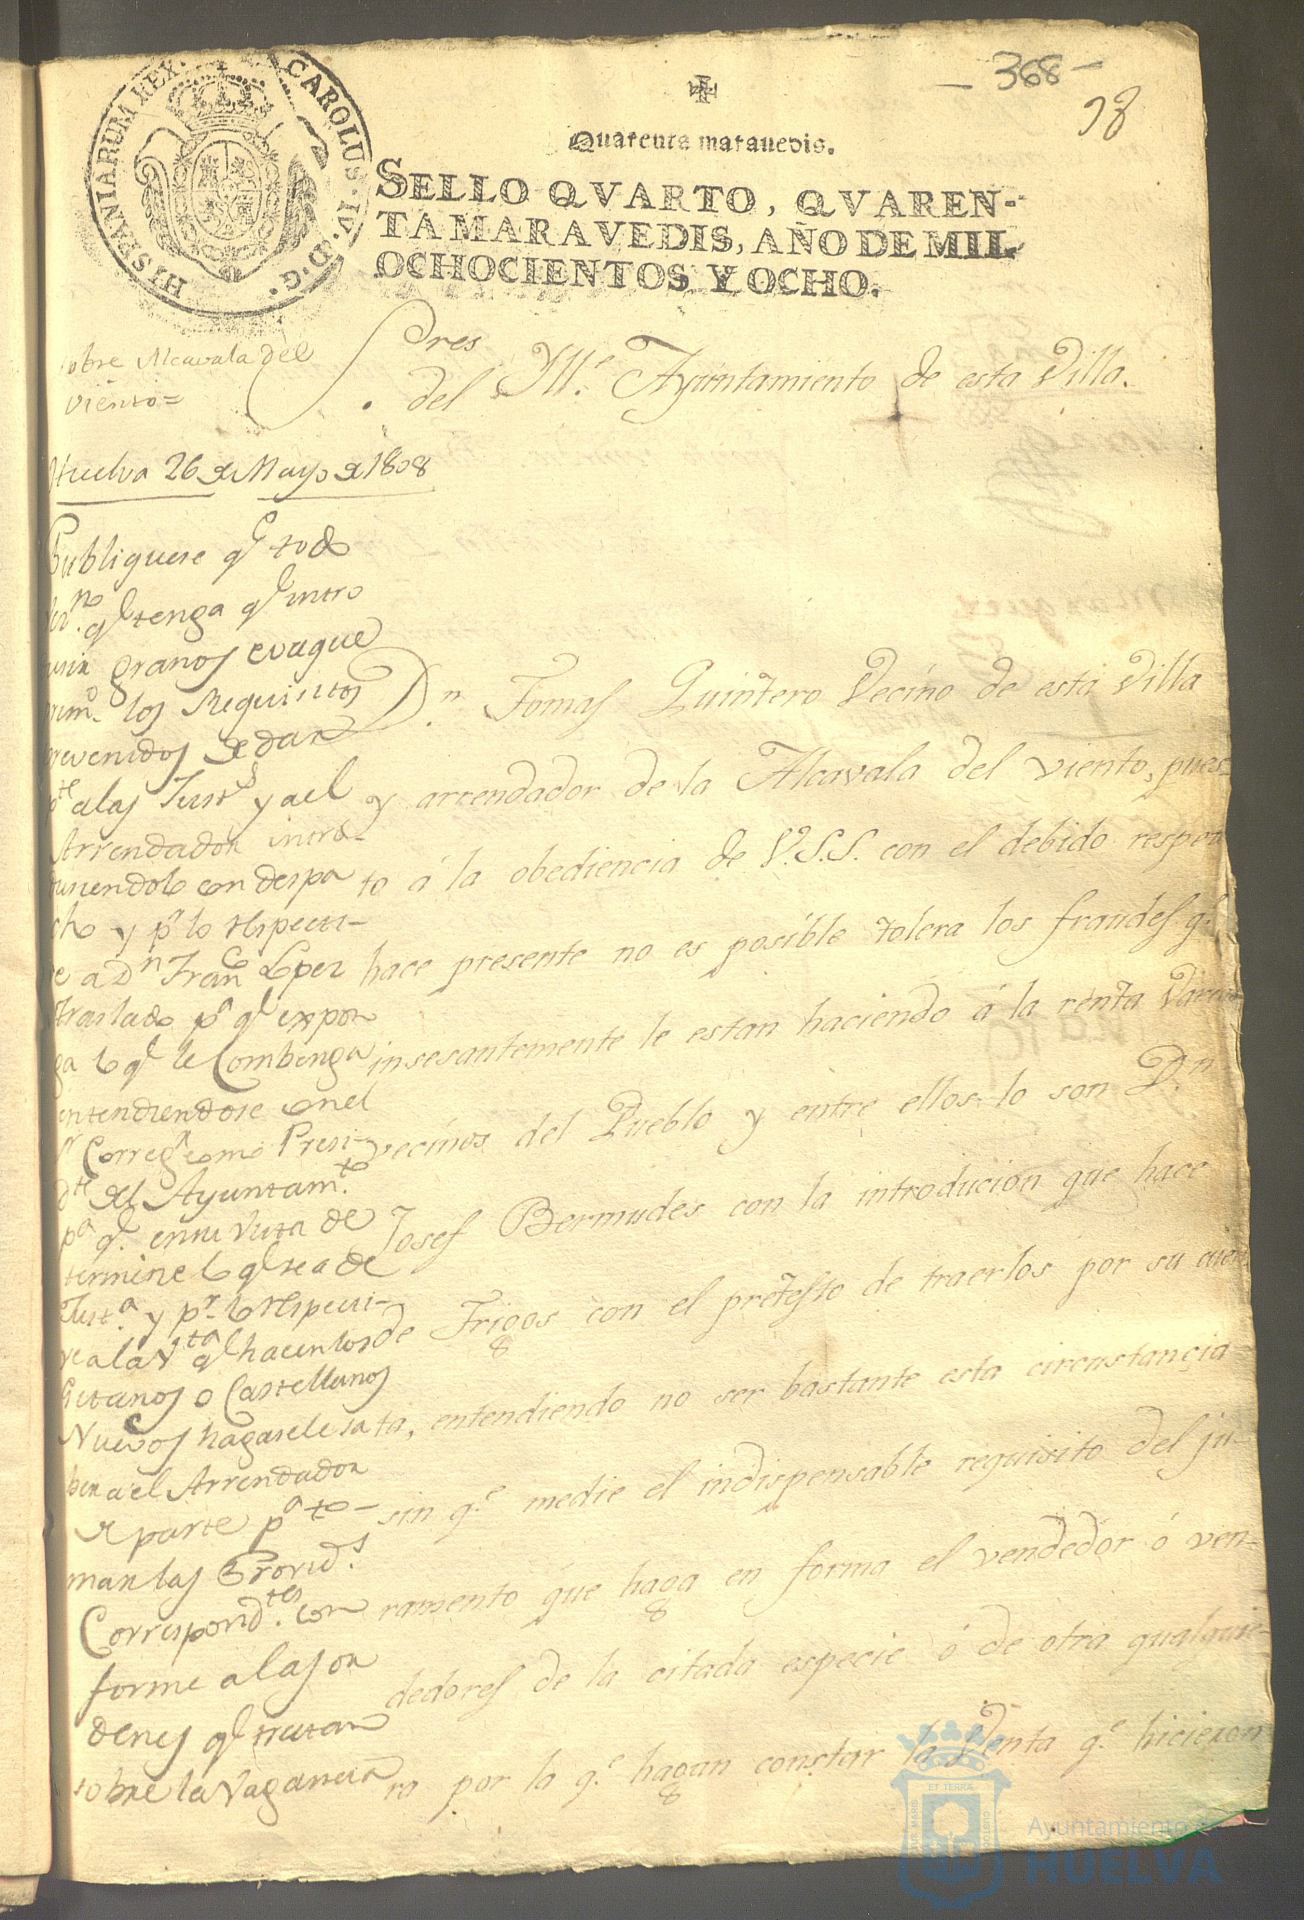 368
98
HISPANIARUM REX. CAROLUS. IV. D. G.
Quarenta maravedis.
SELLO QVARTO, QVAREN-
TA MARAVEDIS, AÑO DE MIL
OCHOCIENTOS Y OCHO.
obre Alcavala del
viento=
Sres
del Ill.e Ayuntamiento de esta Villa.
Huelva 26 de Mayo de 1808
Publiquese q.e todo
vez.no q.e tenga q.e intro
ducir granos evaque
prim.o los Requisitos
prevenidos de dar
p.te a las Just.s y a el
Arrendador intro-
duciendolo con despa
cho y p.r lo respecti-
ve a Dn Fran.co Lopez
traslado p.a q.e expon
ga lo q.e le Combenga
entendiendose con el
s.r Correg.r como Presi-
d.te del Ayuntam.to
p.a q.e en su vista de
termine lo q.e sea de
Just.a y p.r lo respecti-
ve a la v.ta q.e hacen los
Gitanos o Castellanos
Nuevos hagasele sa
ber a el Arrendador
de parte p.a to-
man las Provid.s
Correspond.tes con
forme a las or
denes q.e tratan
sobre la Vagancia
D.n Tomas Quintero Vecino de esta Villa
y arrendador de la Alcavala del viento, pues
to á la obediencia de V.S.S. con el debido respeto
hace presente no es posible tolera los fraudes q.e
insesantemente le estan haciendo á la renta varios
vecinos del Pueblo y entre ellos lo son D.n
Josef Bermudes con la introducion que hace
de Trigos con el pretesto de traerlos por su cuen
ta, entendiendo no ser bastante esta circustancia
sin q.e medie el indispensable requisito del ju-
ramento que haga en forma el vendedor ó ven-
dedores de la citada especie ó de otra qualquie-
ra por la q.e hagan constar la Venta q.e hicieron
ET TERRA
Ayuntamiento de
HUELVA